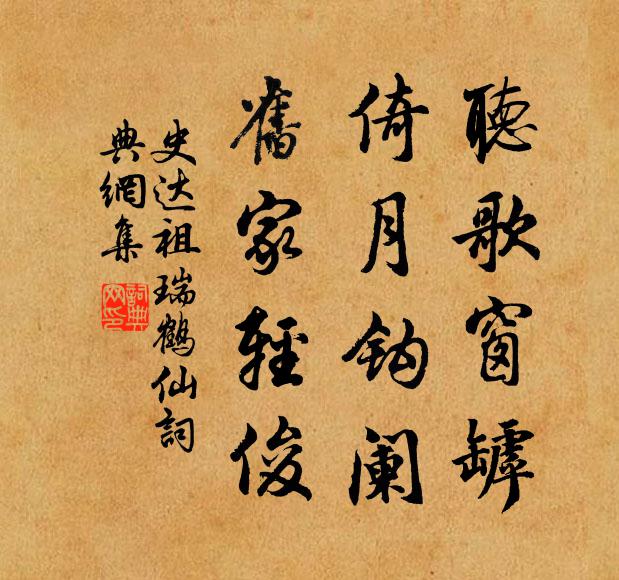 聽歌窗罅
倚月鈎阑
舊家輕俊
史达祖瑞鶴仙詞
典網集
詞典网印